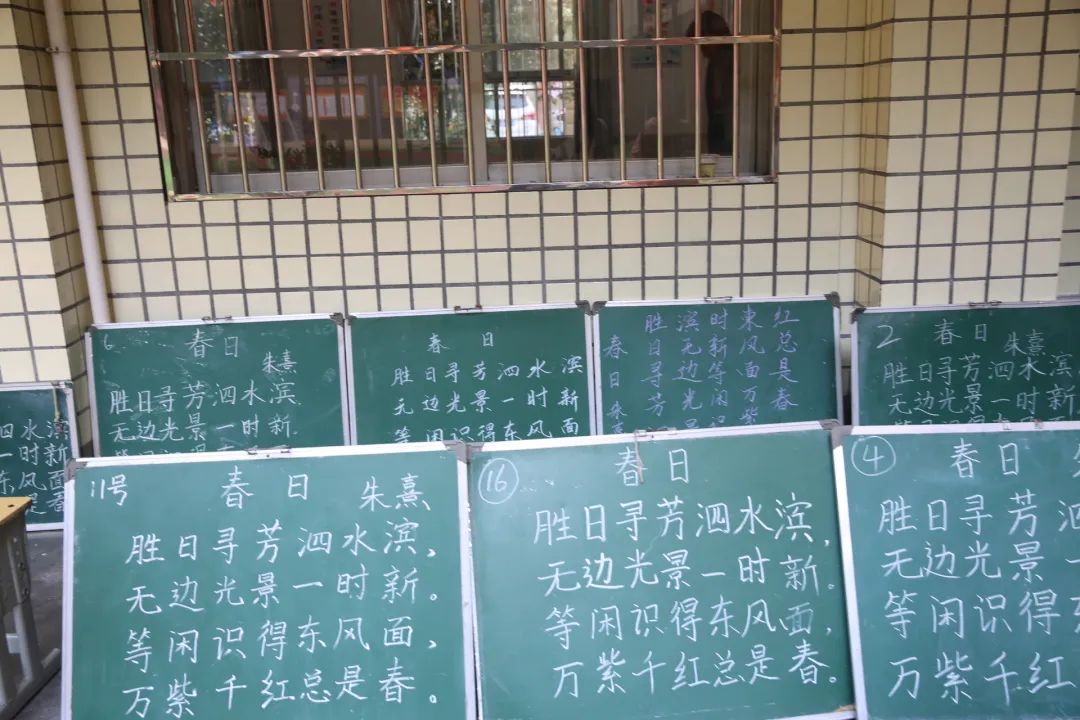 6
春日
朱熹
胜日寻芳泗水滨,
无边光景一时新.
春 日
胜日寻芳泗水滨
无边光景一时新
等闲识得东风面
胜滨时東红
日无新风总
寻边等面是
芳光闲万春
春日朱
2
春日
朱熹
胜日寻芳泗水滨
无边光景一时新
泗水滨
一时新
东风面
总是春
11号
春 日 朱熹
胜日寻芳泗水滨,
无边光景一时新。
等闲识得东风面,
万紫千红总是春。
16
春日
胜日寻芳泗水滨,
无边光景一时新。
等闲识得东风面,
万紫千红总是春。
4
春日
胜日寻芳
无边光景一
等闲识得
万紫千红